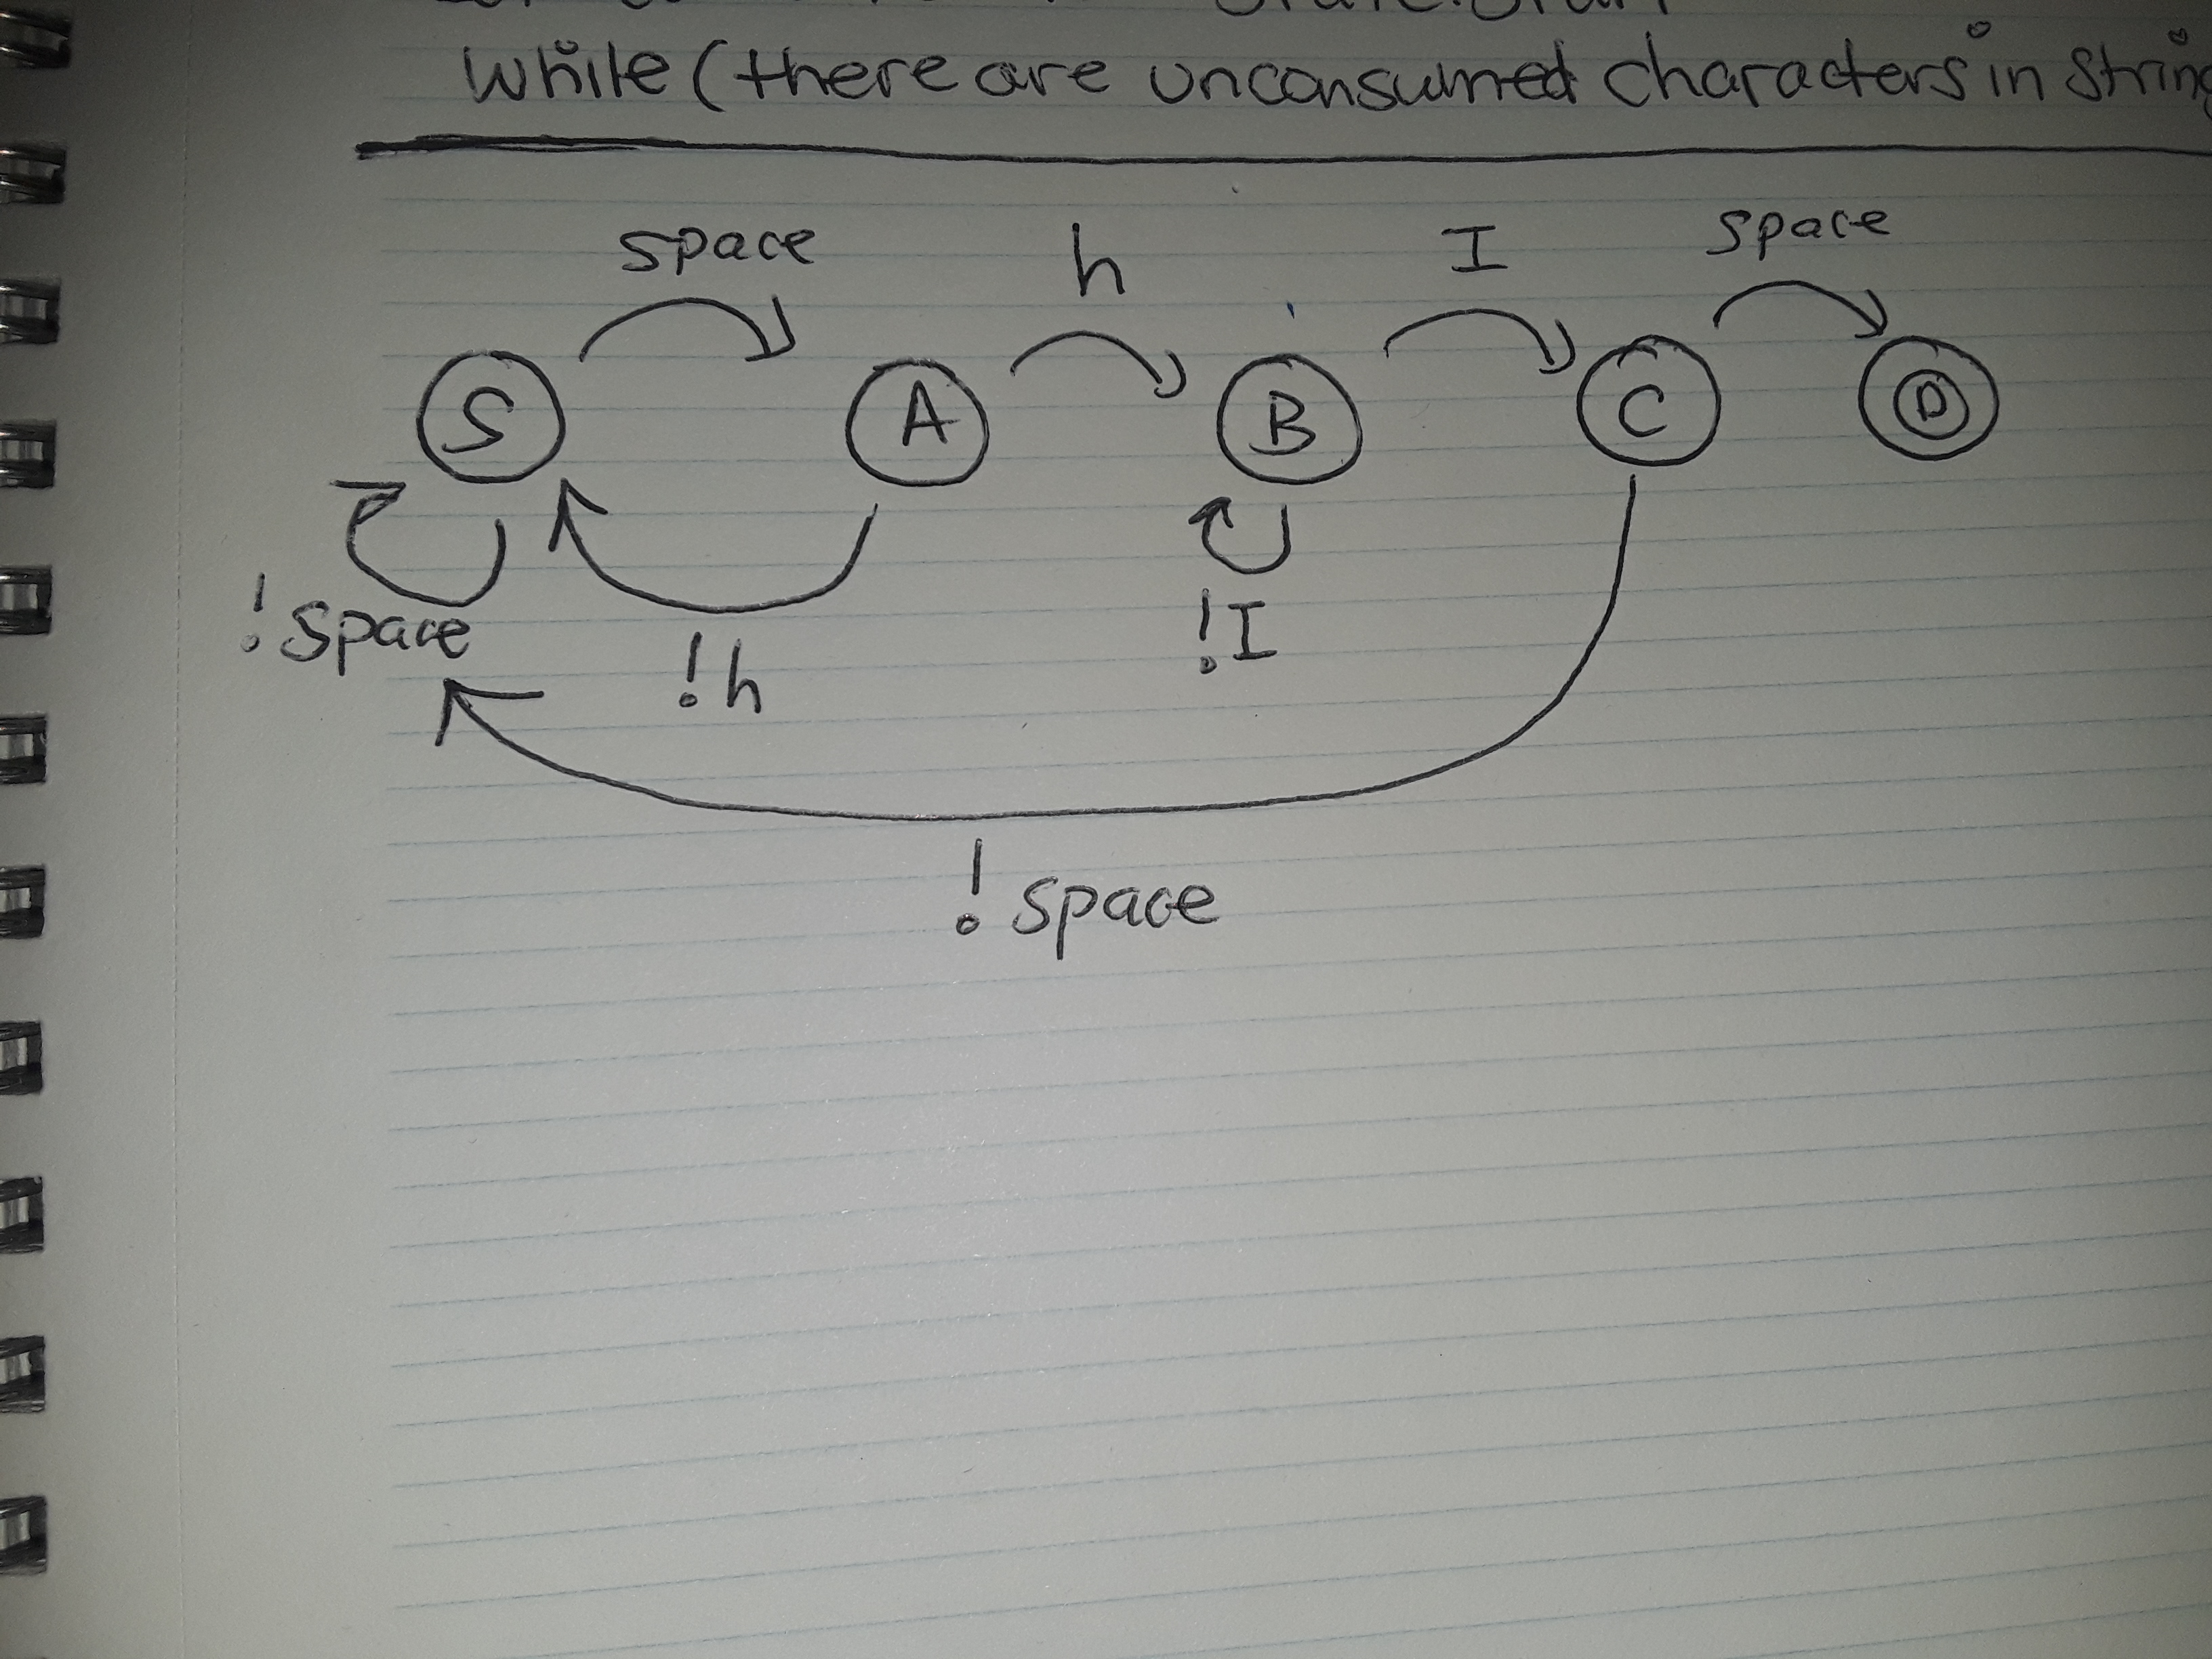 while (there are unconsumed characters in string
space h I space
S A B C D
! space !h !I
! space